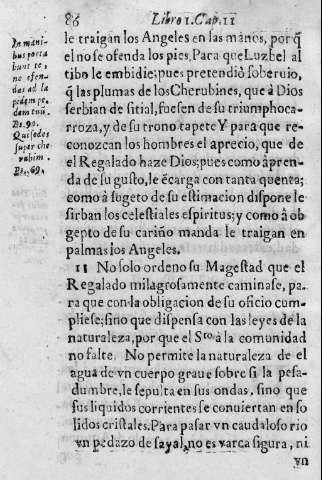 86 Libro I. Cap. II
le traigan los Angeles en las manos, por q̃
el no se ofenda los pies. Para que Luzbel al
tibo le embidie; pues pretendió soberuio,
q̃ las plumas de los Cherubines, que à Dios
serbian de sitial, fuesen de su triumpho ca-
rroza, y de su trono tapete Y para que re-
conozcan los hombres el aprecio, que de
el Regalado haze Dios; pues como à pren-
da de su gusto, le ẽcarga con tanta quenta;
como à sugeto de su estimacion dispone le
sirban los celestiales espiritus; y como à ob
gepto de su cariño manda le traigan en
palmas los Angeles.
II No solo ordeno su Magestad que el
Regalado milagrosamente caminase, pa-
ra que con la obligacion de su oficio cum-
pliese; sino que dispensa con las leyes de la
naturaleza, por que el Sto à la comunidad
no falte. No permite la naturaleza de el
agua de vn cuerpo graue sobre si la pesa-
dumbre, le sepulta en sus ondas, sino que
sus liquidos corrientes se conuiertan en so
lidos cristales. Para pasar vn caudaloso rio
vn pedazo de sayal, no es varca sigura, ni
vn
In mani-
bus porta
bunt te,
ne ofen-
das ad la
pidem pe-
dem tuũ.
Ps. 90.
Qui sedes
super che
rubim.
Ps. 69.